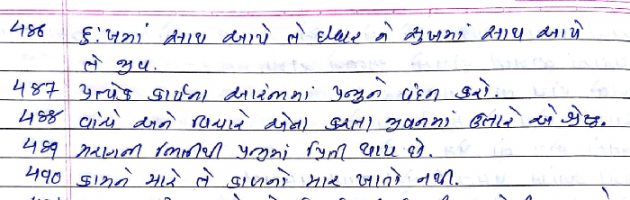 486 દુઃખમાં સાથ આપે તે ઈશ્વર ને સુખમાં સાથ આપે
તે જીવ.
487 પ્રત્યેક કાર્યના આરંભમાં પ્રભુને વંદન કરો.
488 વાંચે અને વિચારે એના કરતા જીવનમાં ઉતારે એ શ્રેષ્ઠ.
489 મરણની ભીતિથી પ્રભુમાં પ્રિતી થાય છે.
490 કામને મારે તે કાળનો માર ખાતો નથી.